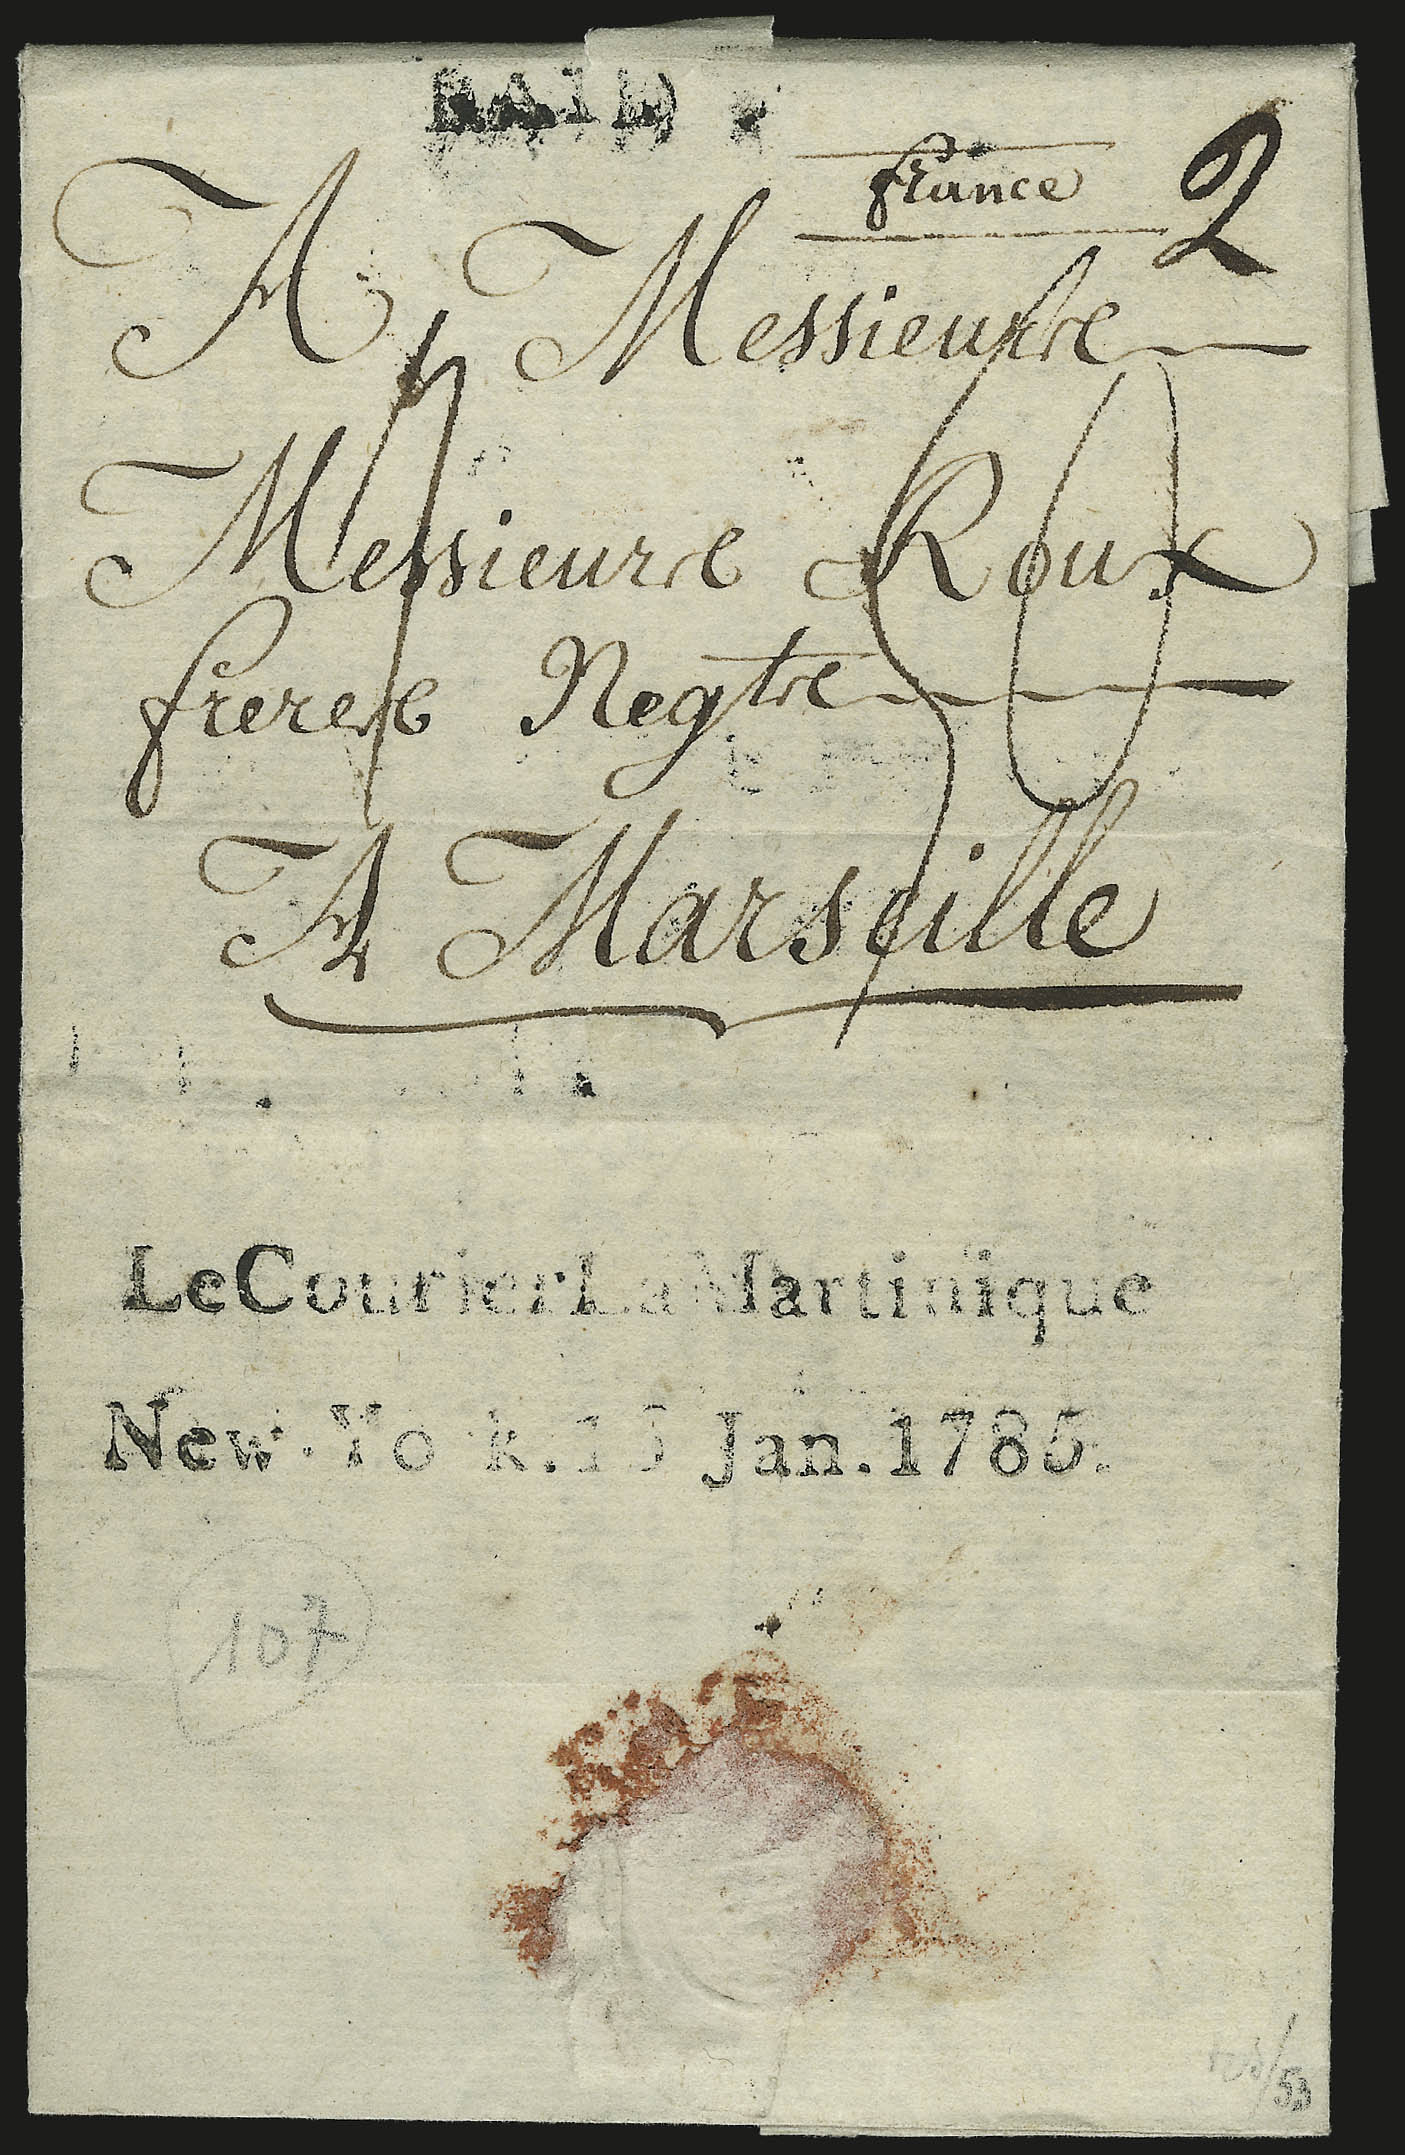 PAID
france 2
A Messieurs
Messieurs Roux
freres Negts
A Marseille
Le Courier La Martinique
New-York. 15 Jan. 1785.
107